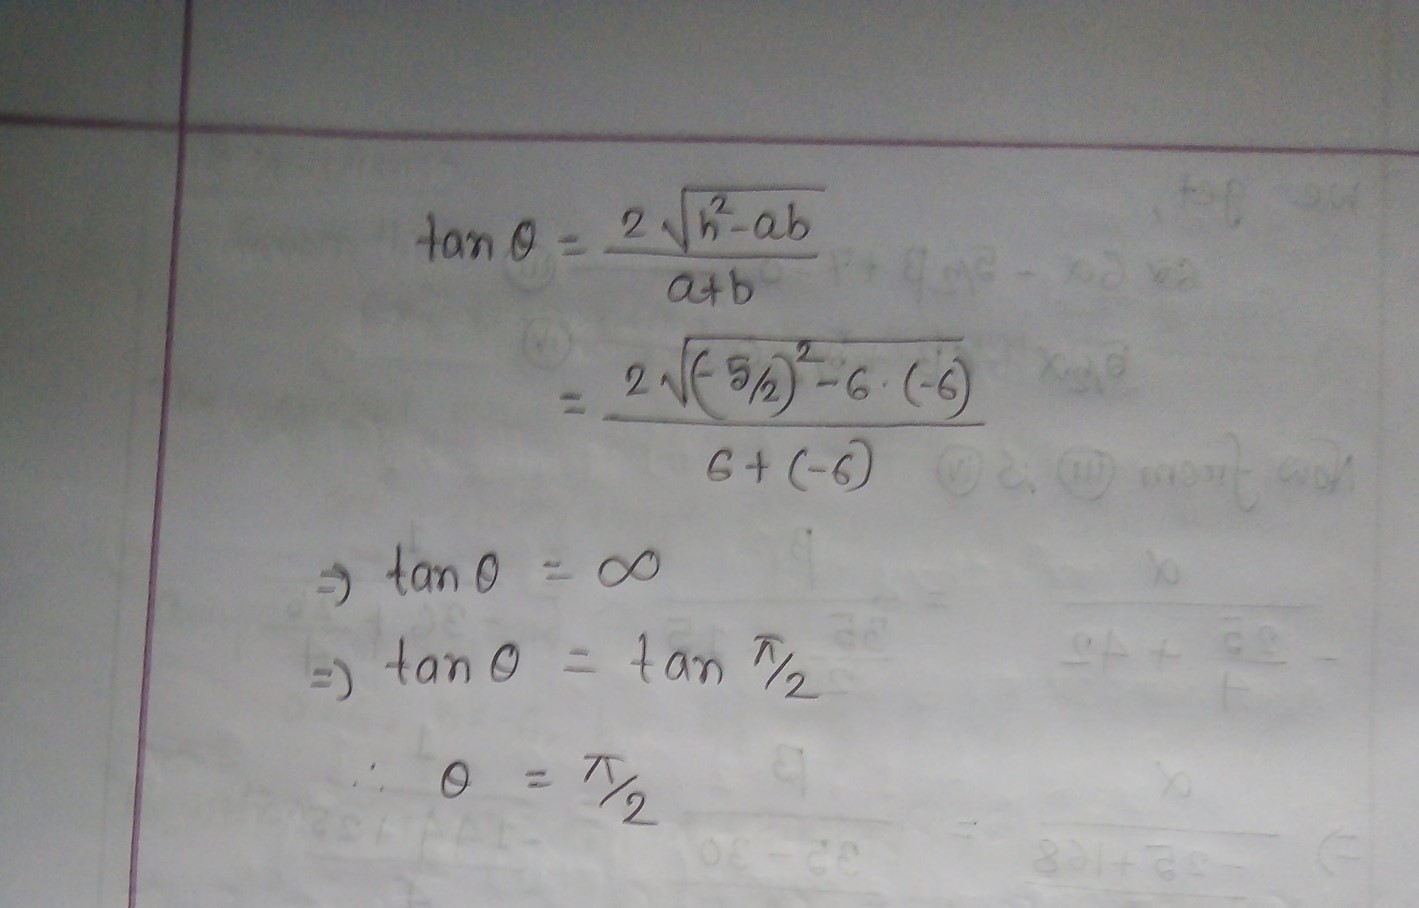 tan θ = 2√(h²-ab) / a+b
= 2√((-5/2)²-6·(-6)) / 6+(-6)
⇒ tan θ = ∞
⇒ tan θ = tan π/2
∴ θ = π/2